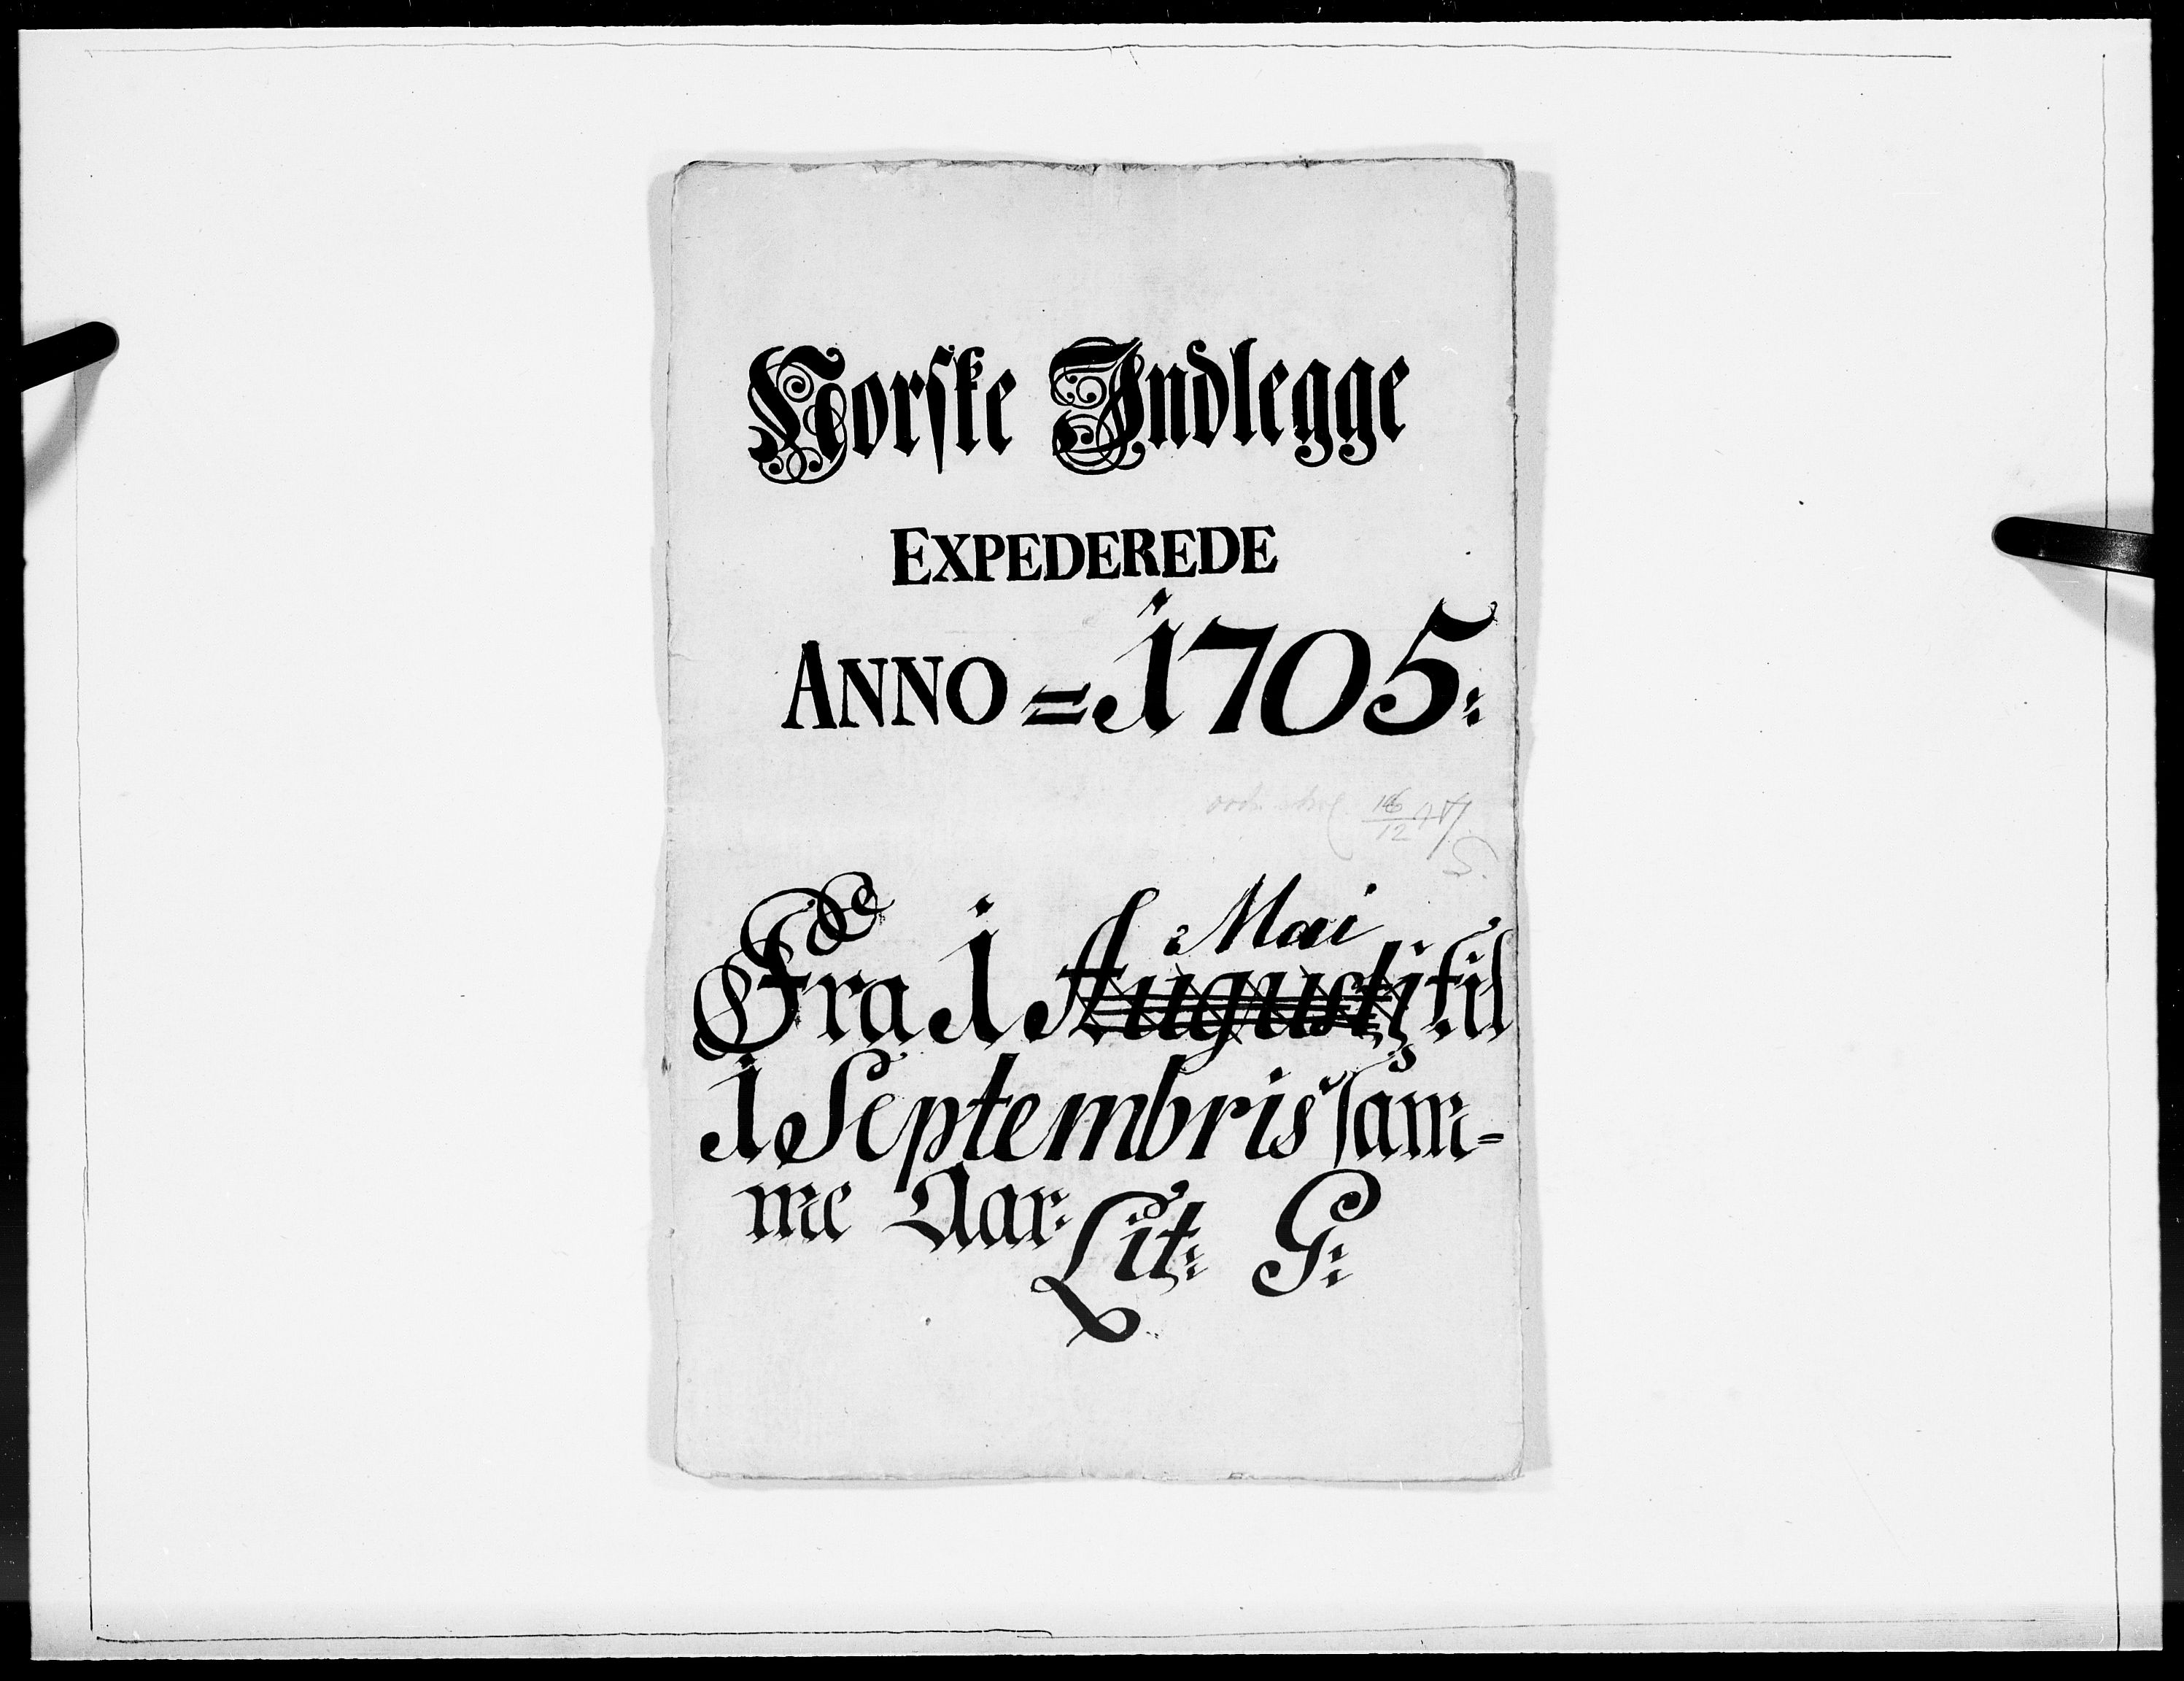 Norske Indlegge
EXPEDEREDE
ANNO = 1705:
16/12
S.
Mai
Fra 1 Augustj til
1 Septembris sam=
me Aar: Lit: G: